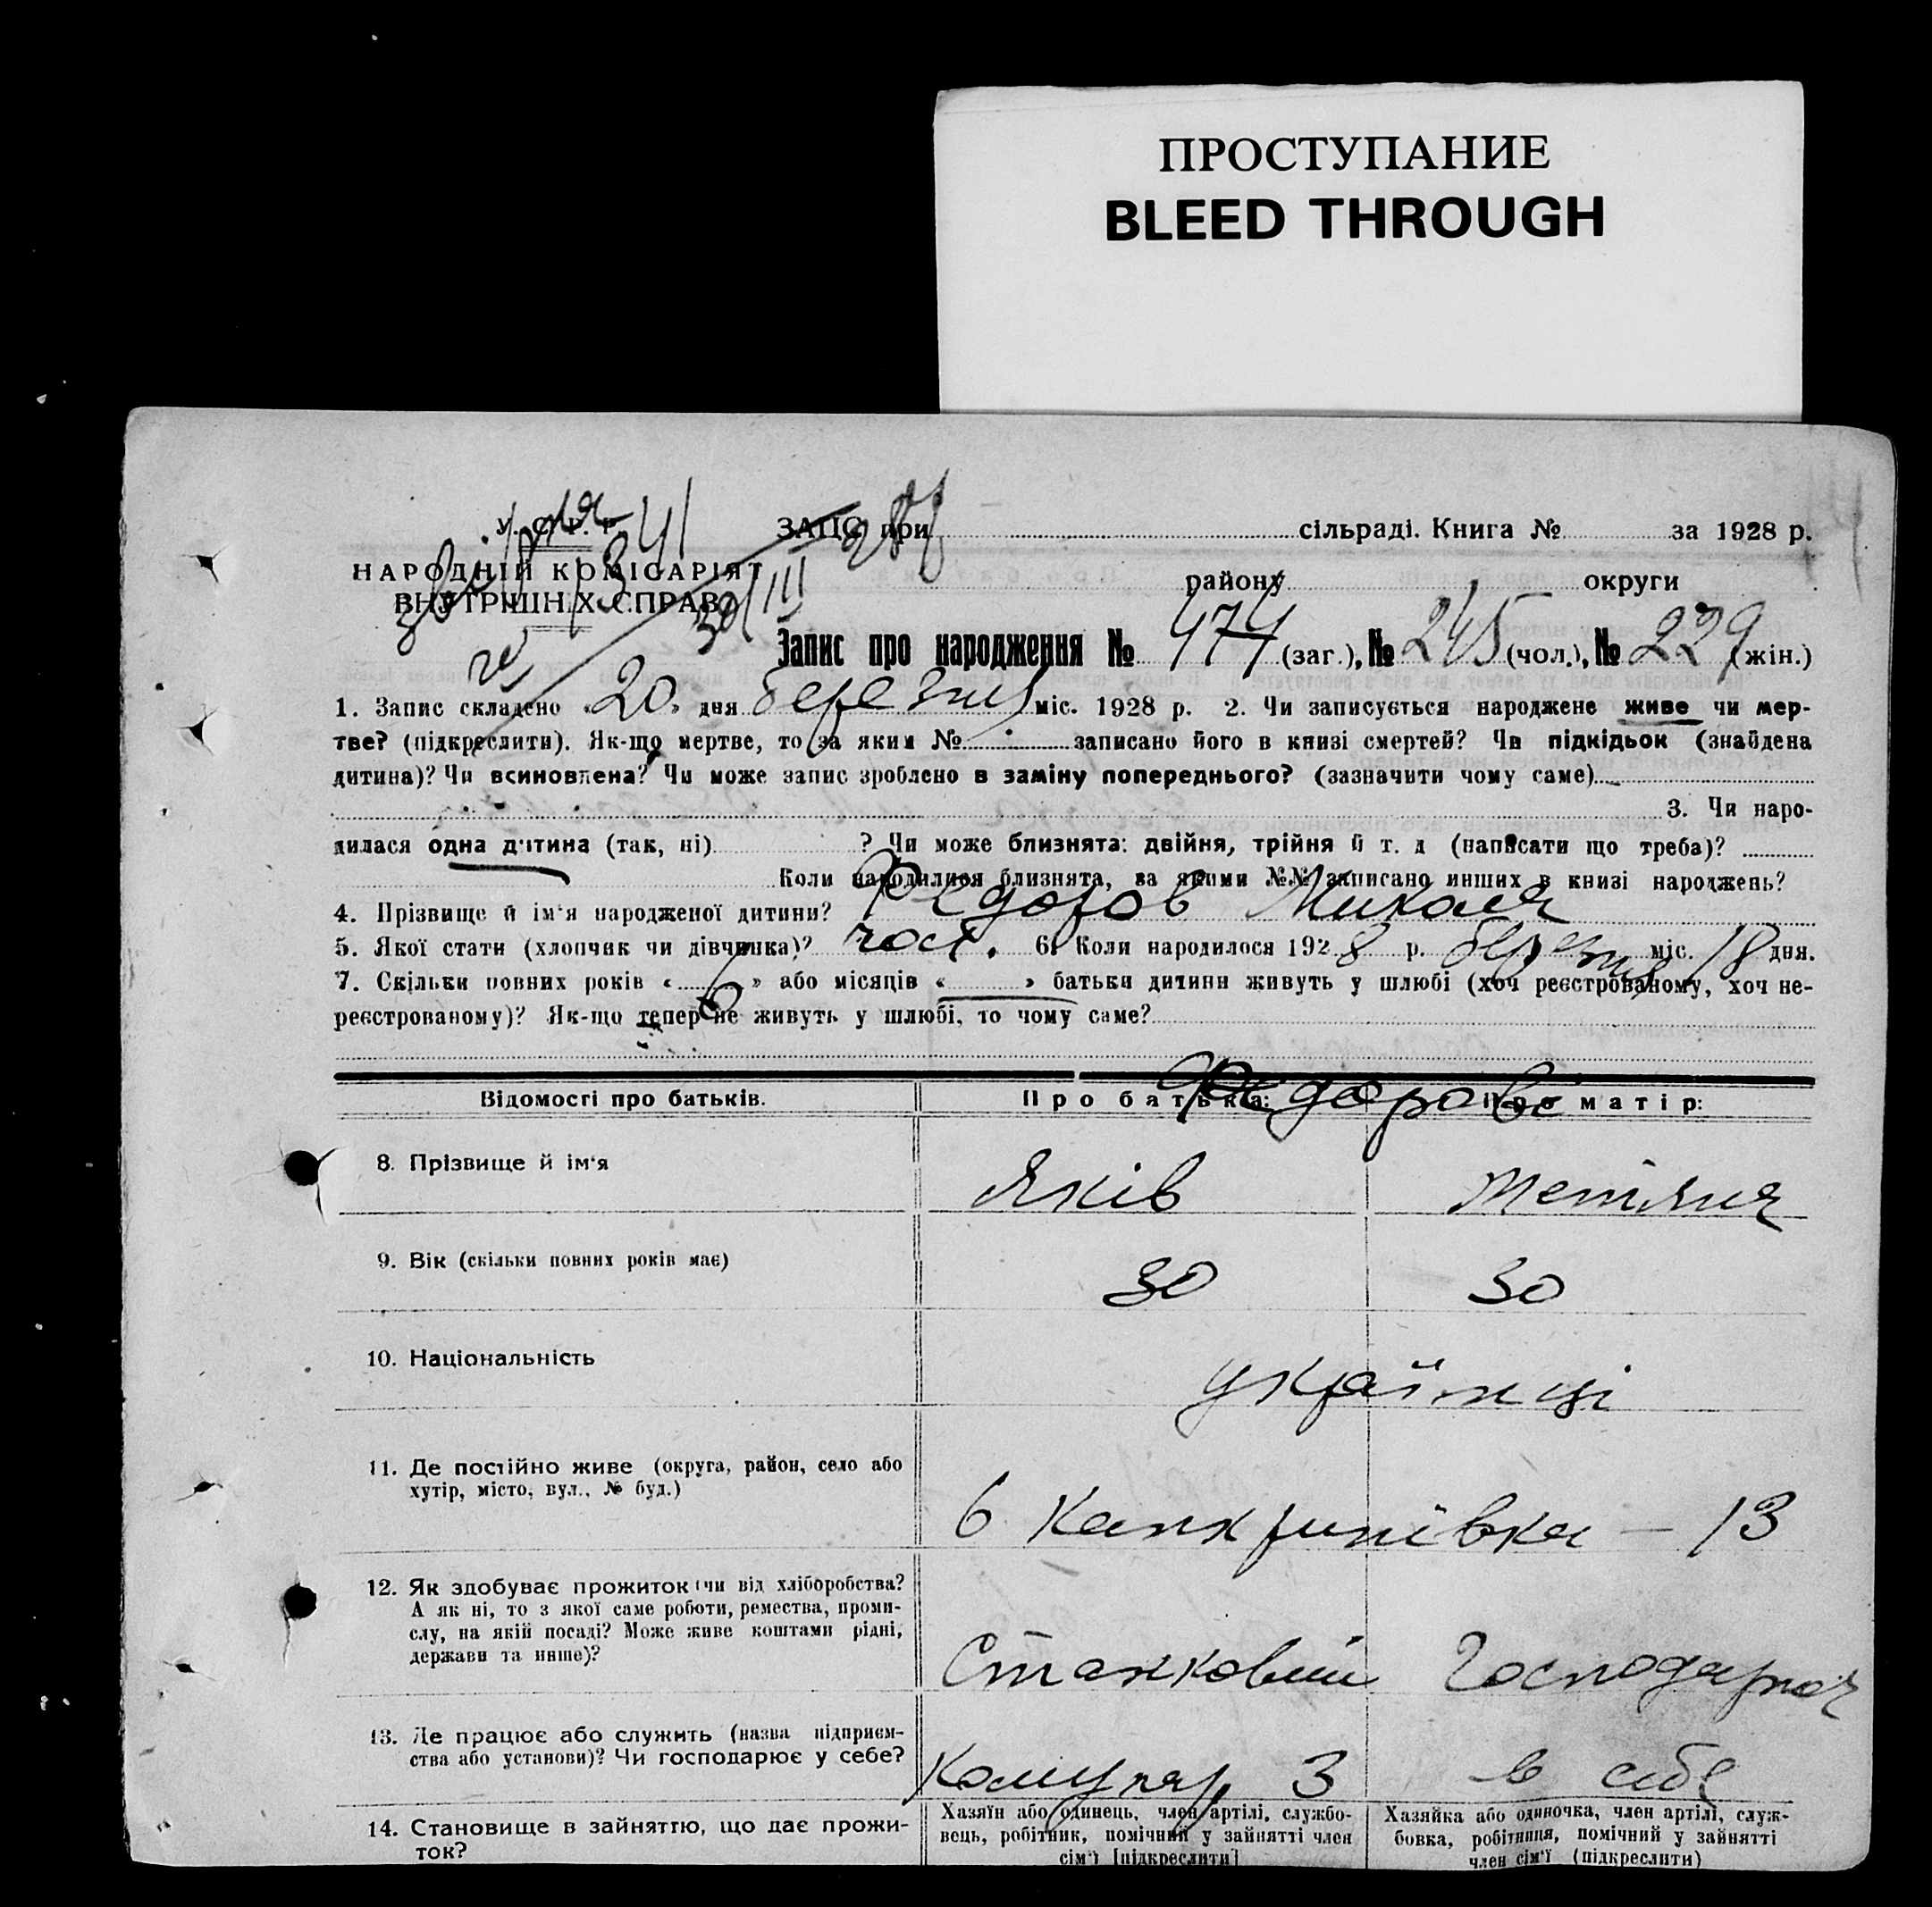 ПРОСТУПАНИЕ
BLEED THROUGH
У. С. Р. Р.
341
ЗАГС при сільраді. Книга № за 1928 р.
НАРОДНІЙ КОМІСАРІЯТ
району округи
ВНУТРІШНІХ СПРАВ
30/III
Запис про народження № 474 (заг.), № 245 (чол.), № 229 (жін.)
1. Запис складено «20» дня березня міс. 1928 р. 2. Чи записується народжене живе чи мер-
тве? (підкреслити). Як-що мертве, то за яким № записано його в книзі смертей? Чи підкідьок (знайдена
дитина)? Чи всиновлена? Чи може запис зроблено в заміну попереднього? (зазначити чому саме)
3. Чи наро-
дилася одна дитина (так, ні) ? Чи може близнята: двійня, трійня й т. д (написати що треба)?
Коли народилися близнята, за якими №№ записано инших в книзі народжень?
4. Прізвище й ім'я народженої дитини? Федоров
5. Якої стати (хлопчик чи дівчинка)? 6. Коли народилося 1928 р. березня міс. 18 дня.
7. Скільки повних років «6» або місяців « » батьки дитини живуть у шлюбі (хоч реєстрованому, хоч не-
реєстрованому)? Як-що тепер не живуть у шлюбі, то чому саме?
Відомості про батьків. Про батька: Про матір:
Федорови
8. Прізвище й ім'я Яків
9. Вік (скільки повних років має) 30 30
10. Національність українці
11. Де постійно живе (округа, район, село або
хутір, місто, вул., № буд.)
6 Канкринівка – 13
12. Як здобуває прожиток (чи від хліборобства?
А як ні, то з якої саме роботи, ремества, проми-
слу, на якій посаді? Може живе коштами рідні,
держави та инше)?
Станковий Господарка
13. Де працює або служить (назва підприєм-
ства або установи)? Чи господарює у себе?
Комунар 3 в себе
14. Становище в зайняттю, що дає прожи-
ток?
Хазяїн або одинець, член артілі, службо-
вець, робітник, помічний у зайнятті член
сім'ї [підкреслити]
Хазяйка або одиночка, член артілі, служ-
бовка, робітниця, помічний у зайнятті
член сім'ї (підкреслити)